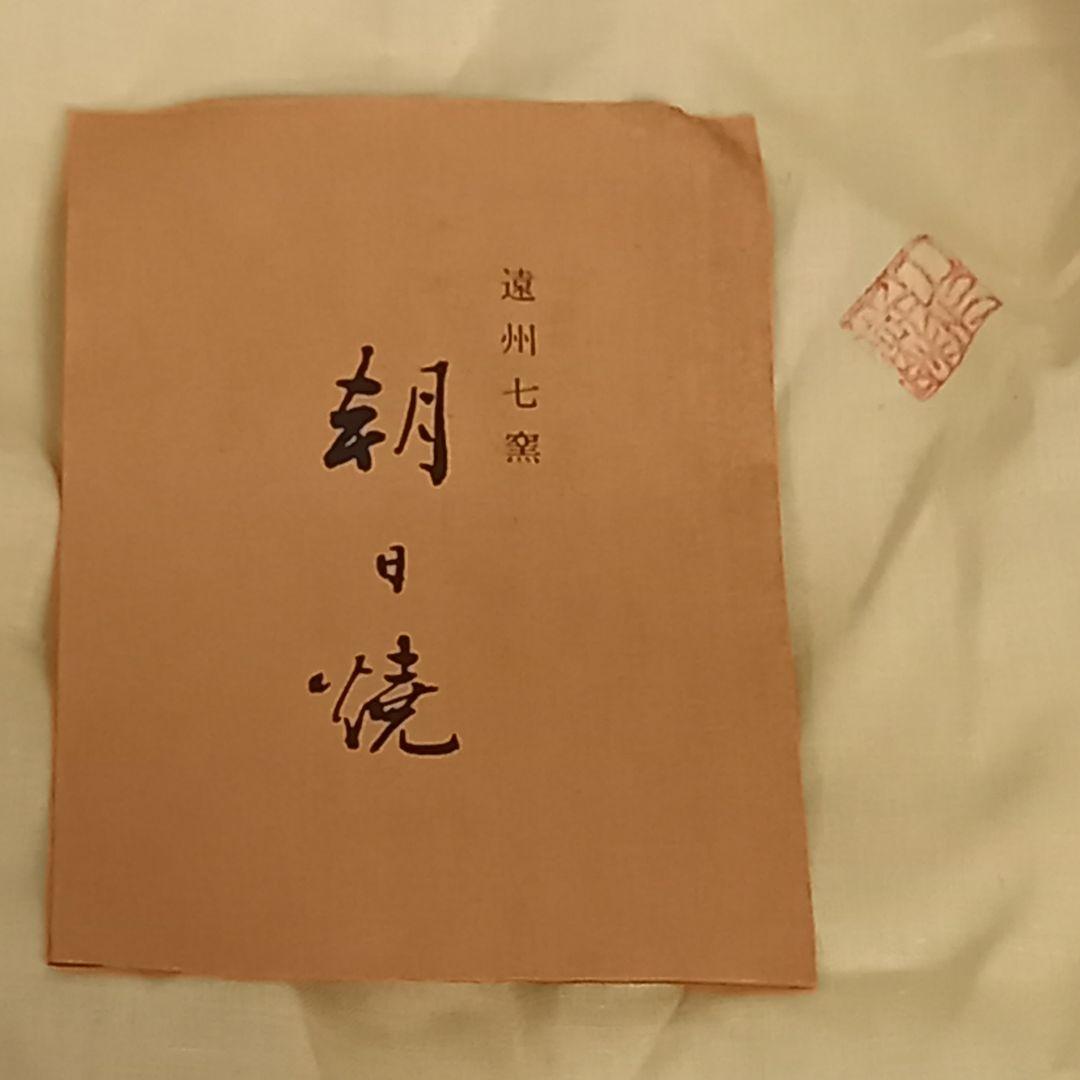 遠州七窯
朝日燒